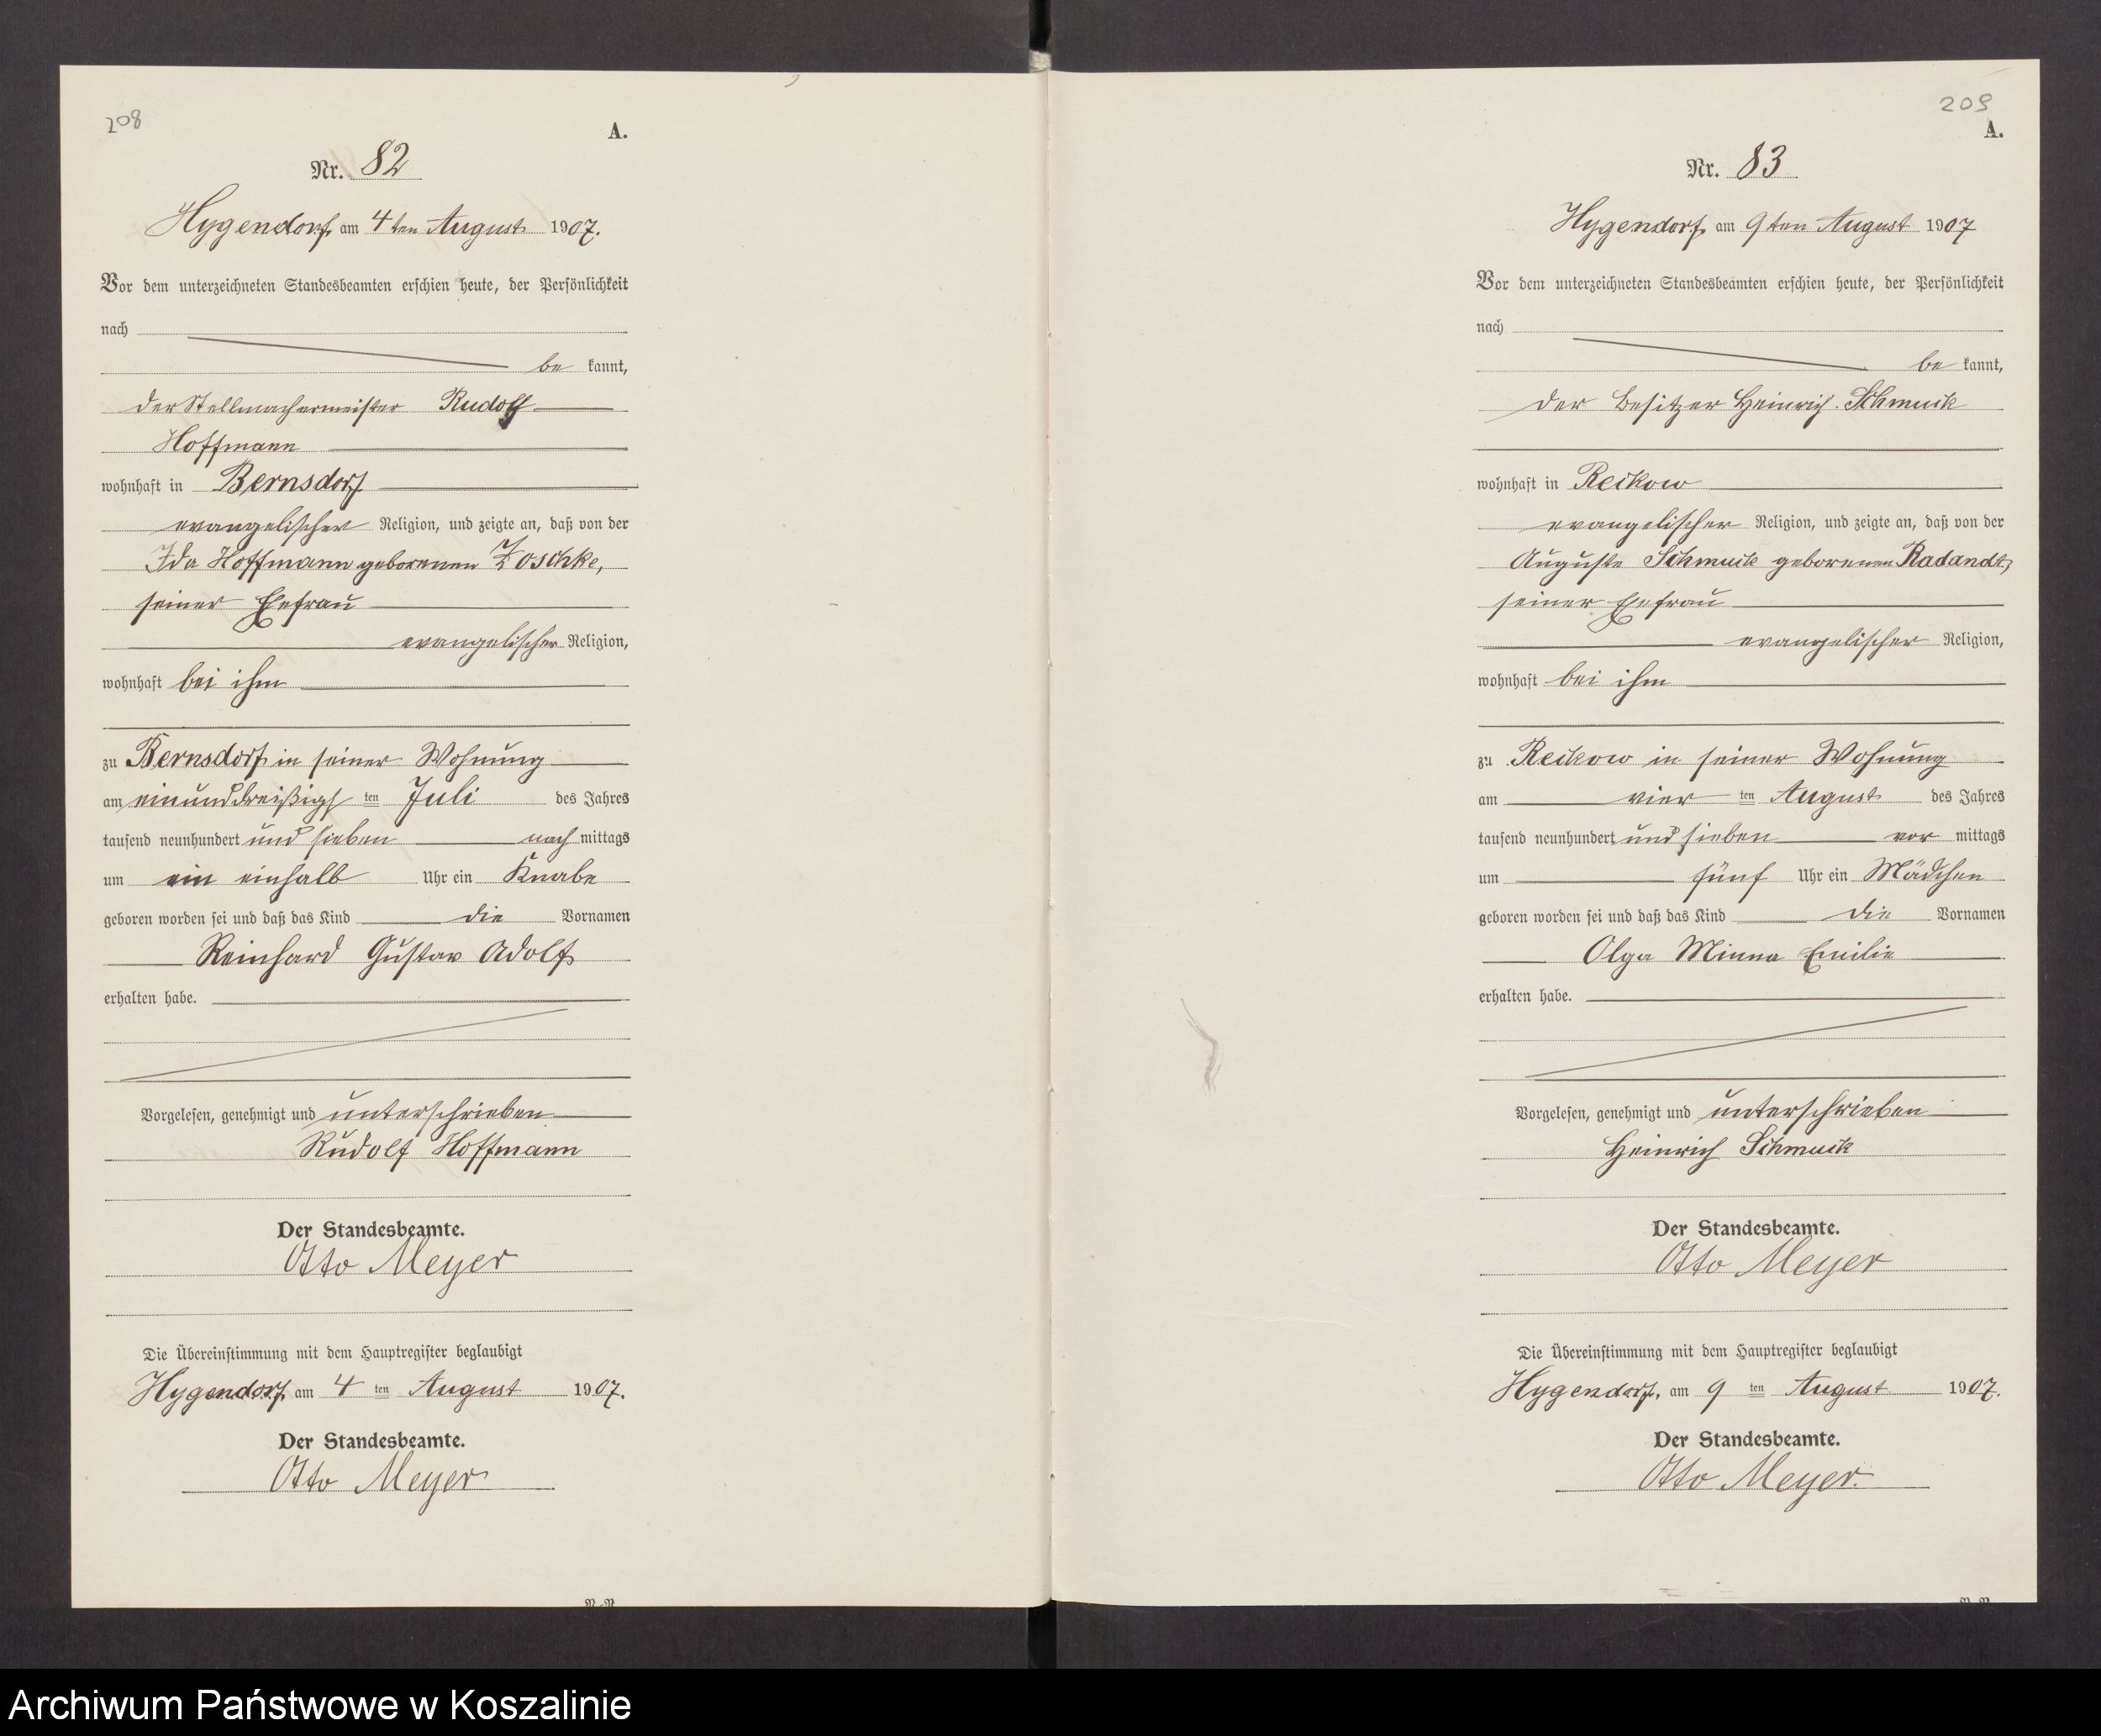 208
A.
Nr. 82
Hygendorf am 4ten August 1907.
Vor dem unterzeichneten Standesbeamten erschien heute, der Persönlichkeit
nach
be kannt,
der Stellmachermeister Rudolf
Hoffmann
wohnhaft in Bernsdorf
evangelischer Religion, und zeigte an, daß von der
Ida Hoffmann geborenen Zoschke,
seiner Ehefrau
evangelischer Religion,
wohnhaft bei ihm
zu Bernsdorf in seiner Wohnung
am einunddreißigs ten Juli des Jahres
tausend neunhundert und sieben nach mittags
um ein einhalb Uhr ein Knabe
geboren worden sei und daß das Kind die Vornamen
Reinhard Gustav Adolf
erhalten habe.
Vorgelesen, genehmigt und unterschrieben
Rudolf Hoffmann
Der Standesbeamte.
Otto Meyer
Die Übereinstimmung mit dem Hauptregister beglaubigt
Hygendorf, am 4 ten August 1907.
Der Standesbeamte.
Otto Meyer
209
A.
Nr. 83
Hygendorf, am 9ten August 1907
Vor dem unterzeichneten Standesbeamten erschien heute, der Persönlichkeit
nach
be kannt,
der Besitzer Heinrich Schmuck
wohnhaft in Reckow
evangelischer Religion, und zeigte an, daß von der
Auguste Schmuck geborenen Radandt,
seiner Ehefrau
evangelischer Religion,
wohnhaft bei ihm
zu Reckow in seiner Wohnung
am vier ten August des Jahres
tausend neunhundert und sieben vor mittags
um fünf Uhr ein Mädchen
geboren worden sei und daß das Kind die Vornamen
Olga Minna Emilie
erhalten habe.
Vorgelesen, genehmigt und unterschrieben
Heinrich Schmuck
Der Standesbeamte.
Otto Meyer
Die Übereinstimmung mit dem Hauptregister beglaubigt
Hygendorf, am 9 ten August 1907.
Der Standesbeamte.
Otto Meyer.
Archiwum Państwowe w Koszalinie